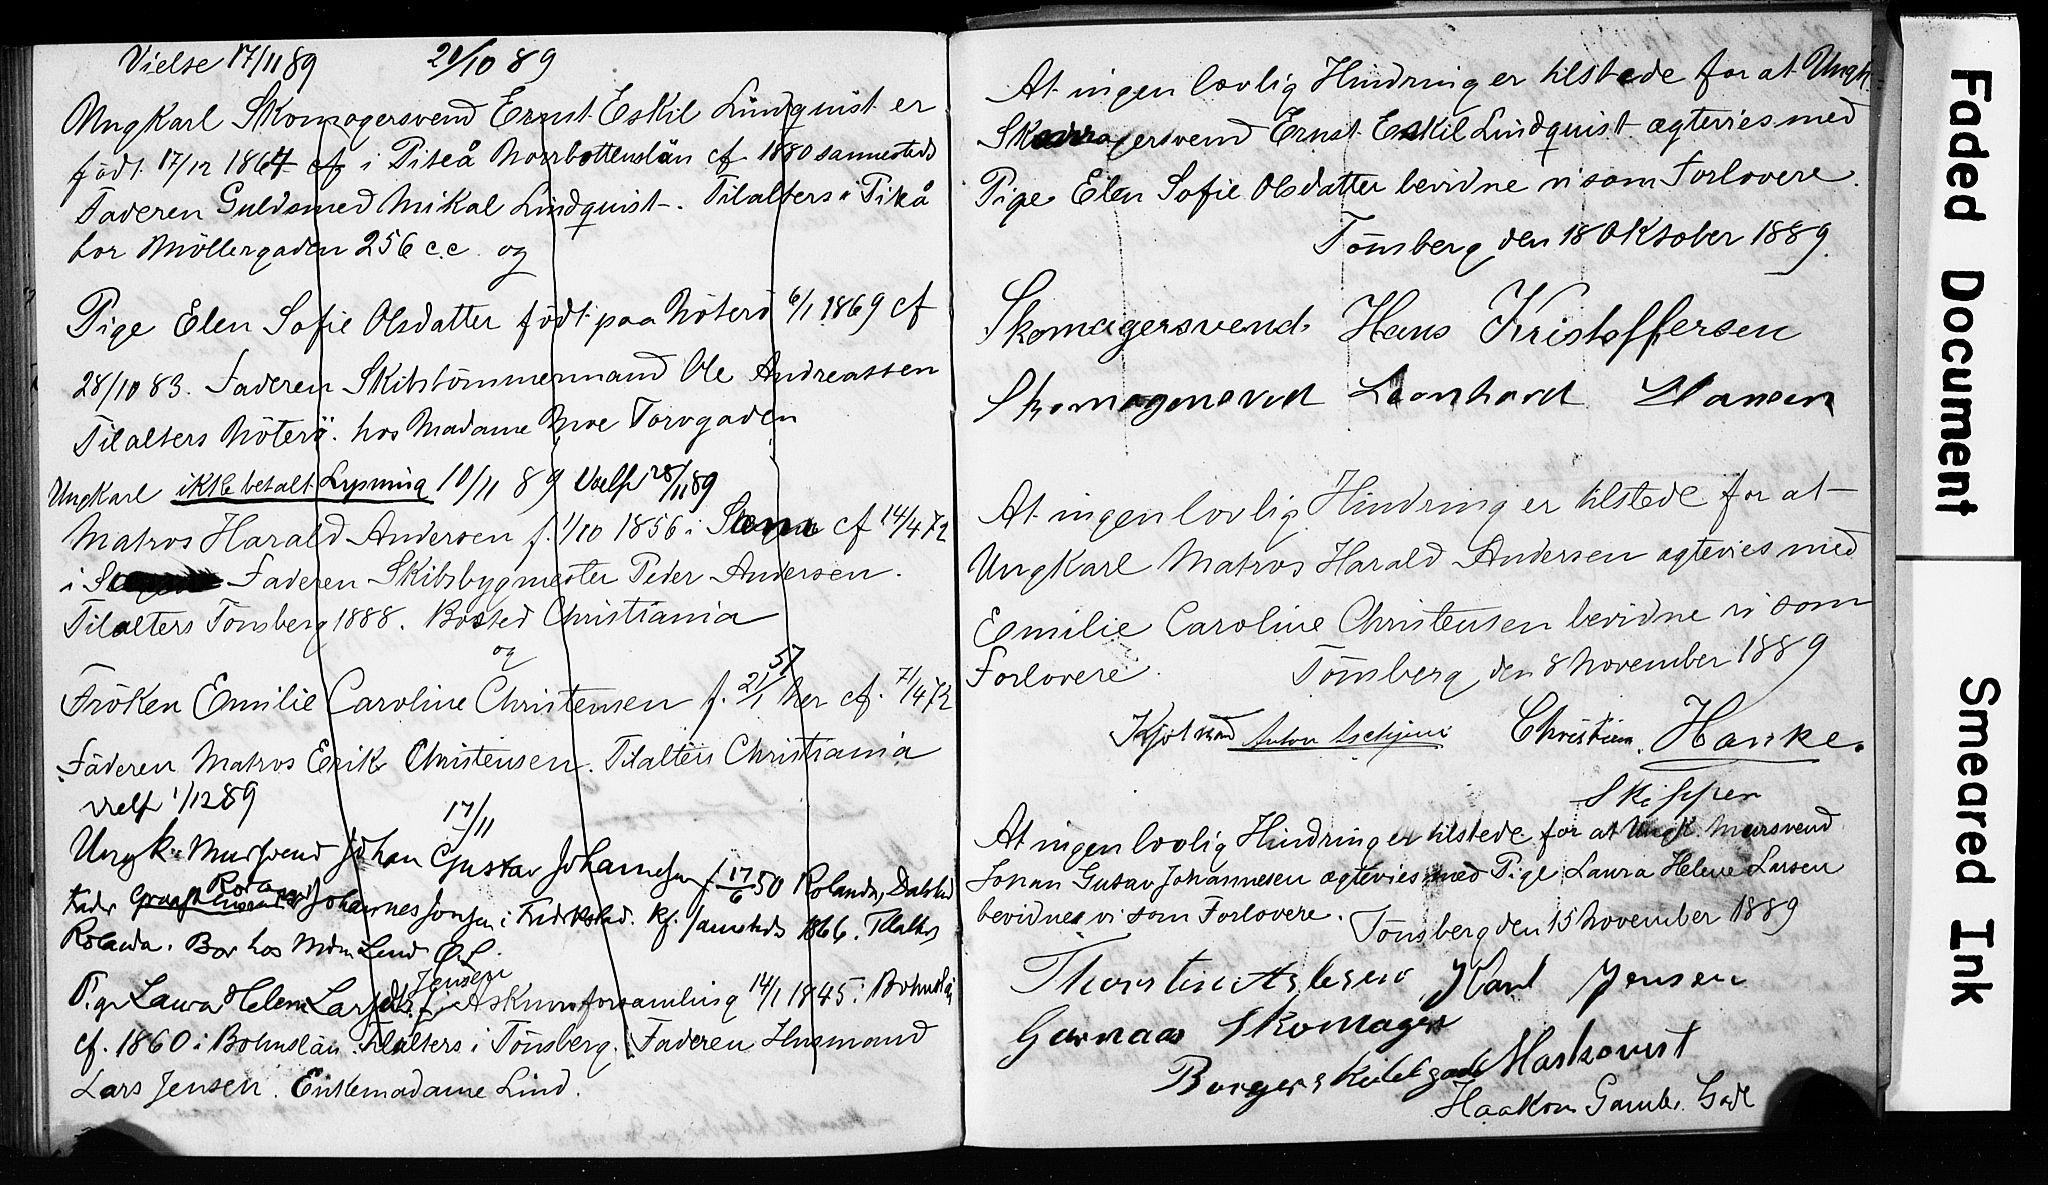 Vielse 17/11 89 20/10 89
Ungkarl Skomagersvend Ernst Eskil Lindquist er
född 17/12 1864 cf i Piteå Norrbottenslän cf 1880 sammesteds
Faderen Guldsmed Mikal Lindquist. Tilalters i Piteå
bor Möllergaden 256 c.c og
Pige Elen Sofie Olsdatter född paa Nöterö 6/1 1869 cf
28/10 83. Faderen Skibstömmermand Ole Andreassen
Tilalters Nöterö. hos Madame Moe Torvgaden
Ungkarl ikke betalt Lysning 10/11 89 Vielse 28/11 89
Matros Harald Andersen f. 1/10 1856 i cf 14/4 72
i Faderen Skibsbygmester Peder Andersen.
Tilalters Tönsberg 1888. Bosted Christiania
og
Fröken Emilie Caroline Christensen f. 21/1 57 her cf. 7/4 72
Faderen Matros Erik Christensen. Tilalters Christiania
Vielse 1/12 89 17/11
Ungk. Mursvend Johan Gustav Johannesen f. 17/6 50 Rolanda, Dalsland
Fader Johannes Jonsen i Fredrikstad. Kf. samsteds 1866. Tilalters
Rolanda. Bor hos Mdm Lind Ø.S.
Pige Laura Helene Larsen Jensen f. i Askums forsamling 14/1 1845 i Bohuslän
cf. 1860 i Bohuslän. Tilalters i Tönsberg. Faderen Husmand
Lars Jensen. Enkemadame Lind.
At ingen lovlig Hindring er tilstede for at Ungk.
Skomagersvend Ernst Eskil Lindquist ægtevies med
Pige Elen Sofie Olsdatter bevidne vi som Forlovere.
Tönsberg den 18 Oktober 1889.
Skomagersvend Hans Kristoffersen
Skomagersvend Leonhard Hansen
At ingen lovlig Hindring er tilstede for at
Ungkarl Matros Harald Andersen ægtevies med
Emilie Caroline Christensen bevidne vi som
Forlovere. Tönsberg den 8 November 1889
Anton Christian Hanke.
Skipper
At ingen lovlig Hindring er tilstede for at Ungk Mursvend
Johan Gustav Johannesen ægtevies med Pige Laura Helene Larsen
bevidnes vi som Forlovere. Tönsberg den 15 November 1889
Karl Jensen
Skomager
Haakon Gamles Gade
Faded Document
Smeared Ink